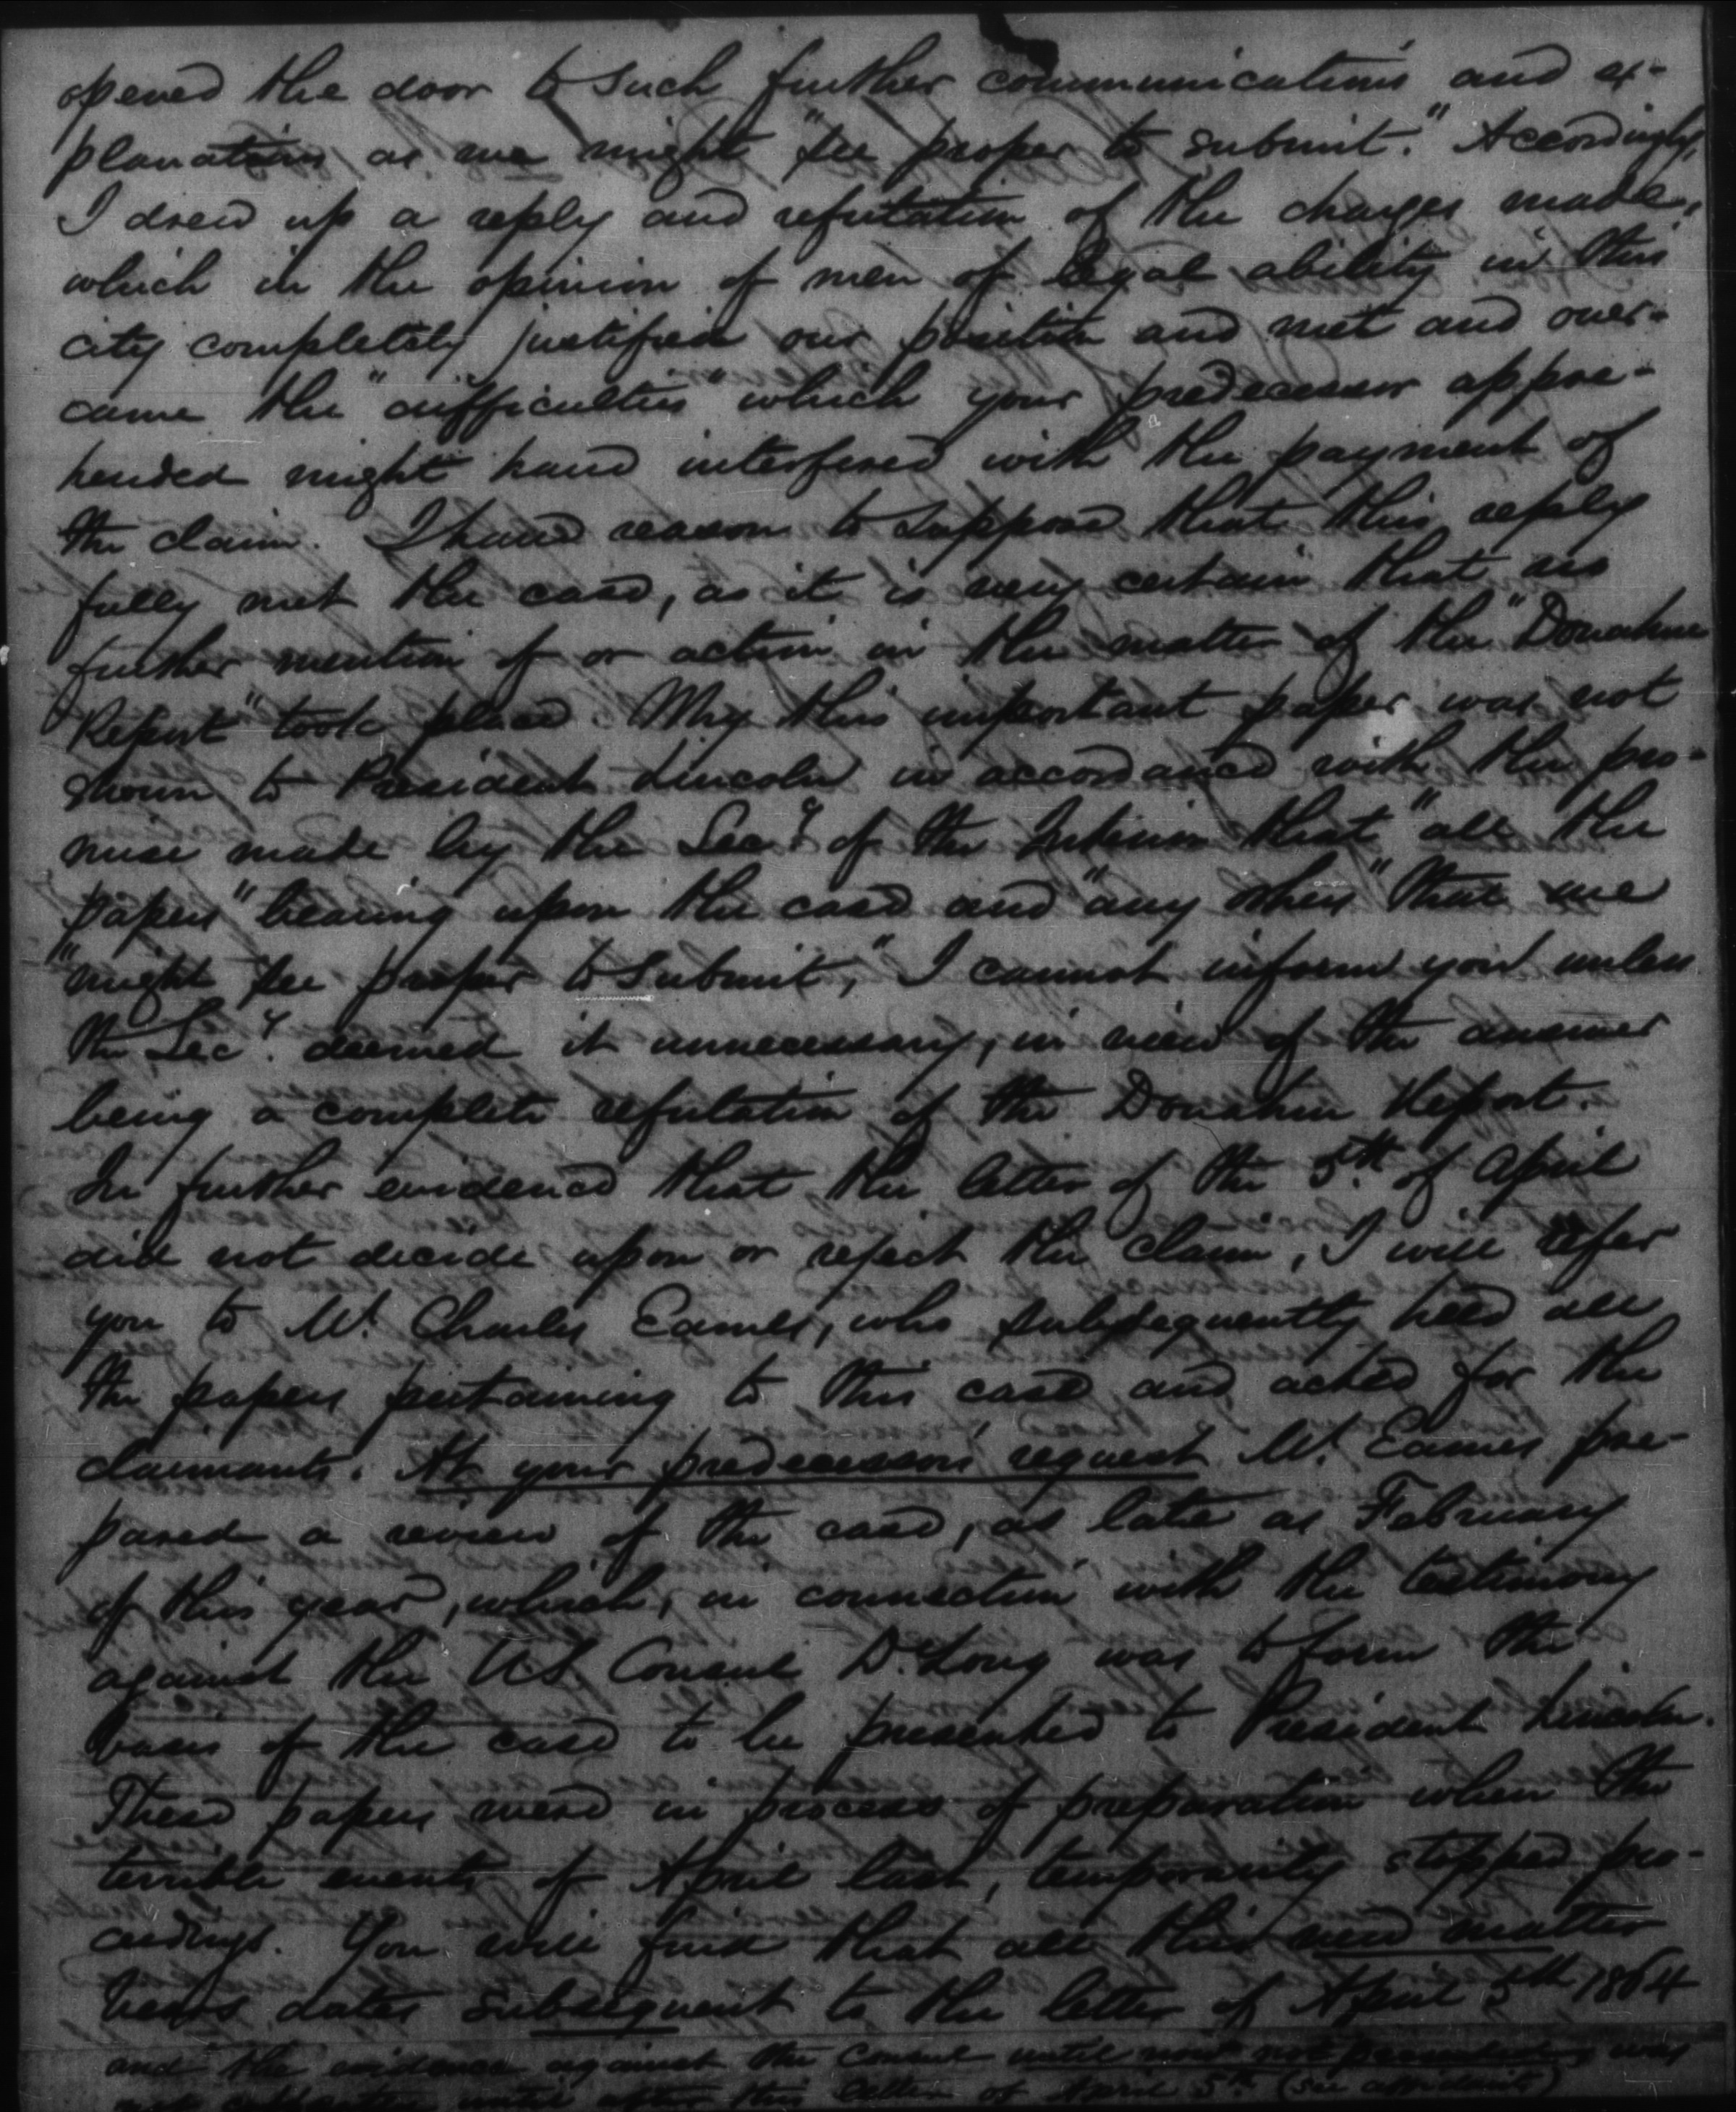 opened the door to such further communications and ex-
planations as we might "see proper to submit." Accordingly,
I drew up a reply and refutation of the charges made,
which in the opinion of men of legal ability in this
city completely justified our position and met and over-
came the "difficulties" which your predecessor appre-
hended might have interfered with the payment of
the claim. I have reason to suppose that this reply
fully met the case, as it is very certain that no
further mention of or action in the matter of the "Donahue
Report" took place. Why this important paper was not
shown to President Lincoln in accordance with the pro-
mise made by the Secy. of the Interior that "all the
papers" bearing upon the case and "any others" that we
"might see proper to submit," I cannot inform you unless
the Secy. deemed it unnecessary, in view of the answer
being a complete refutation of the Donahue Report.
In further evidence that the letter of the 5th. of April
did not decide upon or reject the claim, I will refer
you to Mr. Charles Eames, who subsequently held all
the papers pertaining to this case and acted for the
claimants. At your predecessors' request Mr. Eames pre-
pared a review of the case, as late as February
of this year, which, in connection with the testimony
against the U.S. Consul De Long was to form the
basis of the case to be presented to President Lincoln.
These papers were in process of preparation when the
terrible events of April last, temporarily stopped pro-
ceedings. You will find that all this new matter
bears dates subsequent to the letter of April 5th 1864
and the evidence against the Consul until was
not until after this letter of April 5th. (see affidavits)